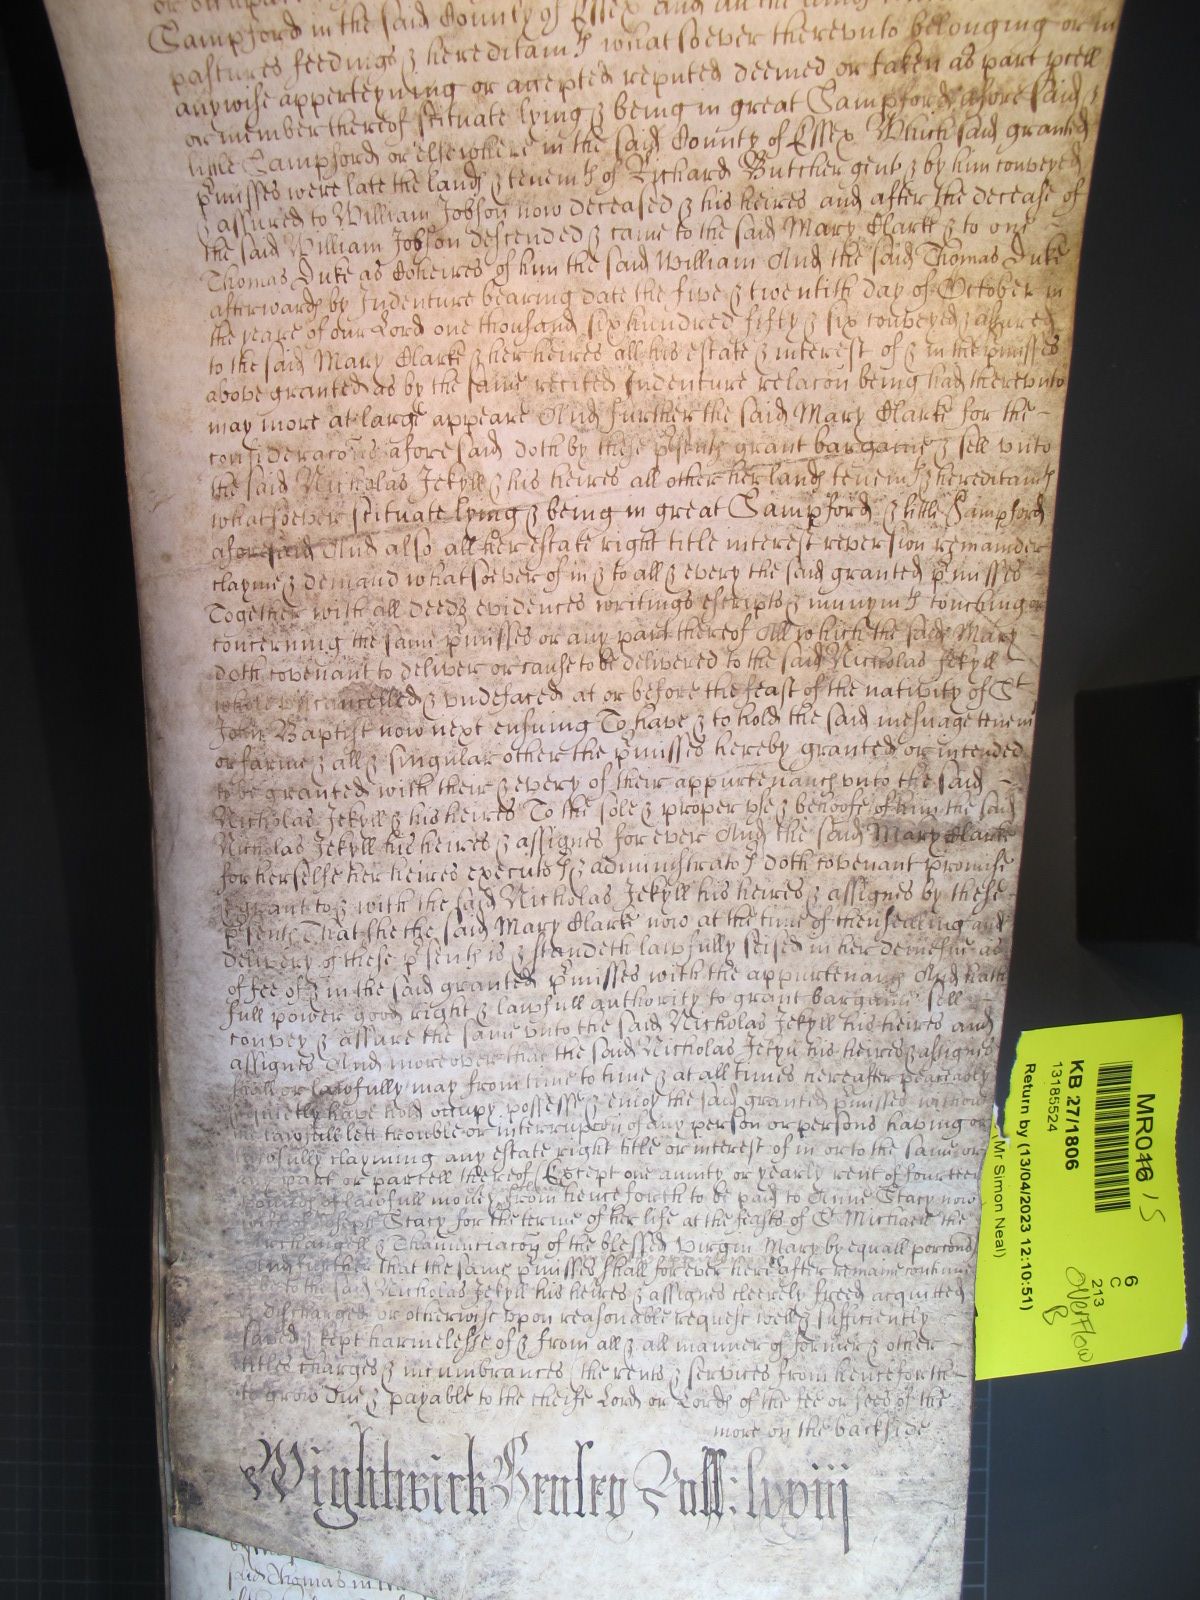 Sampford in the said County of Essex And all the
pastures feedings & hereditamts whatsoever therevnto belonging or in
anywise apperteyning or accepted reputed deemed or taken as part prcell
or member thereof scituate lying & being in great Sampford aforesaid &
little Sampford or elsewhere in the said County of Essex Which said granted
pmisses were late the lands & tenemts of Richard Butcher gent & by him conveyed
& assured to William Jobson now deceased & his heires and after the decease of
the said William Jobson descended & came to the said Mary Clark & to one
Thomas Duke as Coheires of him the said William And the said Thomas Duke
afterwards by Indenture bearing date the five & twentith day of October in
the yeare of our Lord one thousand six hundred fifty & six conveyed & assured
to the said Mary Clarke & her heires all his estate & interest of & in the pmisses
above granted as by the same recited Indenture relacon being had therevnto
may more at large appeare And further the said Mary Clarke for the
consideracons aforesaid doth by these psents grant bargaine & sell vnto
the said Nicholas Jekyll & his heires all other her lands tenemts & hereditamts
whatsoever scituate lying & being in great Sampford & little Sampford
aforesaid And also all her estate right title interest reversion remainder
clayme & demand whatsoever of in & to all & every the said granted pmisses
Together with all deeds evidences writings escripts & munymts touching or
concerning the same pmisses or any part thereof All which the said Mary
doth covenant to deliver or cause to be delivered to the said Nicholas Jekyll
whole vncancelled & vndefaced at or before the feast of the nativity of St
John Baptist now next ensuing To have & to hold the said mesuage tenemt
or farme & all & singular other the pmisses hereby granted or intended
to be granted with their & every of their appurtenancs vnto the said
Nicholas Jekyll & his heires To the sole & proper vse & behoofe of him the said
Nicholas Jekyll his heires & assignes for ever And the said Mary Clarke
for herselfe her heires executors & administrators doth covenant promise
& grant to & with the said Nicholas Jekyll his heires & assignes by these
psents That she the said Mary Clarke now at the time of thensealing and
delivery of these psents is & standeth lawfully seised in her demesne as
of fee of & in the said granted pmisses with the appurtenancs And hath
full power good right & lawfull authority to grant bargaine sell
convey & assure the same vnto the said Nicholas Jekyll his heires and
assignes And moreover that the said Nicholas Jekyll his heires & assignes
shall or lawfully may from time to time & at all times hereafter peaceably
& quietly have hold occupy possesse & enioy the said granted pmisses without
the lawfull lett trouble or interrupcon of any person or persons having or
lawfully clayming any estate right title or interest of in or to the same or
any part or parcell thereof (Except one anuity or yearly rent of fourteen
pounds of lawfull money from henceforth to be paid to Anne Stacy now
wife of Joseph Stacy for the terme of her life at the feasts of St Michaell the
Archangell & Thannunciacon of the blessed virgin Mary by equall porcons
And further that the same pmisses shall for ever hereafter remaine continue
be to the said Nicholas Jekyll his heires & assignes cleerely freed acquitted
& discharged or otherwise vpon reasonable request well & sufficiently
saved & kept harmelesse of & from all & all manner of former & other
titles charges & incumbrances (the rents & services from henceforth
to grow due & payable to the cheife Lord or Lords of the fee or fees of the
more on the backside
Wightwick Henley Roll: lxviij
said Thomas in
MR016 15
KB 27/1806
13185524
Return by (13/04/2023 12:10:51)
(Mr Simon Neal)
6
C
213
Overflow
B